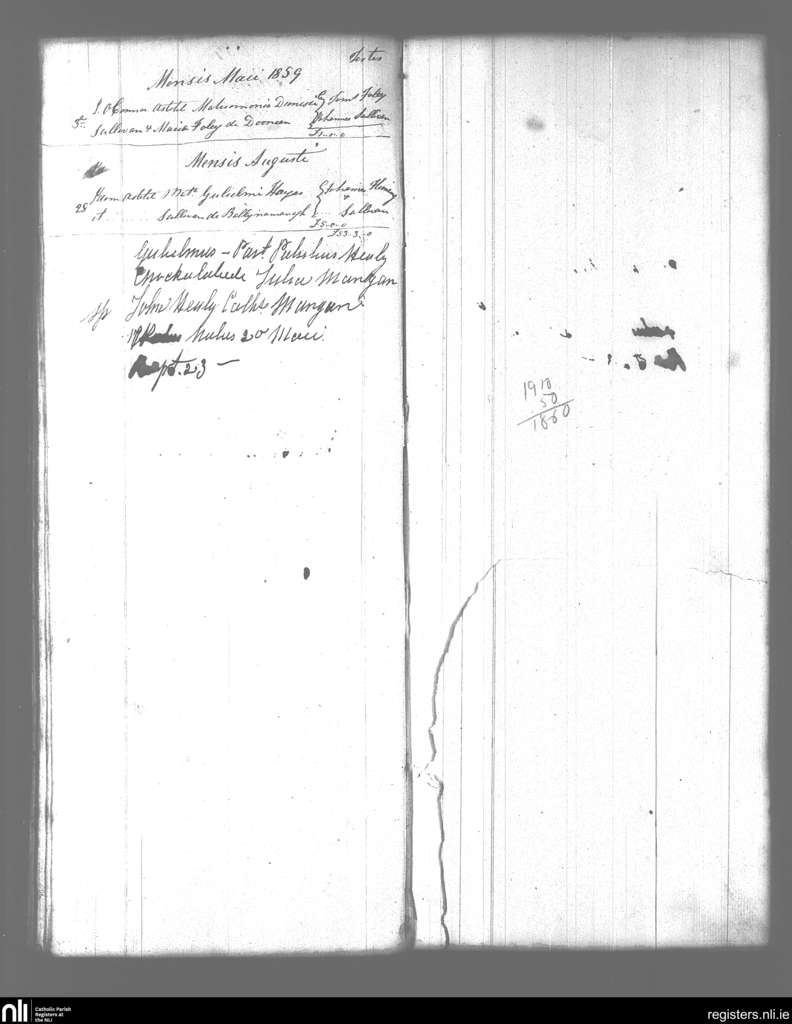 Testes
Mensis Maii 1859
J. O'Connor Astitit Matrimonio
5th Sullivan & Maria Foley de Dooneen Johannes Sullivan
£5-0-0
Mensis Augusti
28 Idem Astitit Mat. Gulielmi Hayes Johannes
et Sullivan de Ballynamaugh Sullivan
£5-0-0
£53-3-0
Gulielmus - Part Patritius Healy
Julia Mangan
Sp John Healy Cath. Mangan
Natus 20 Maii
Bapt. 23 -
1910
50
1860
nli Catholic Parish
Registers at
the NLI
registers.nli.ie